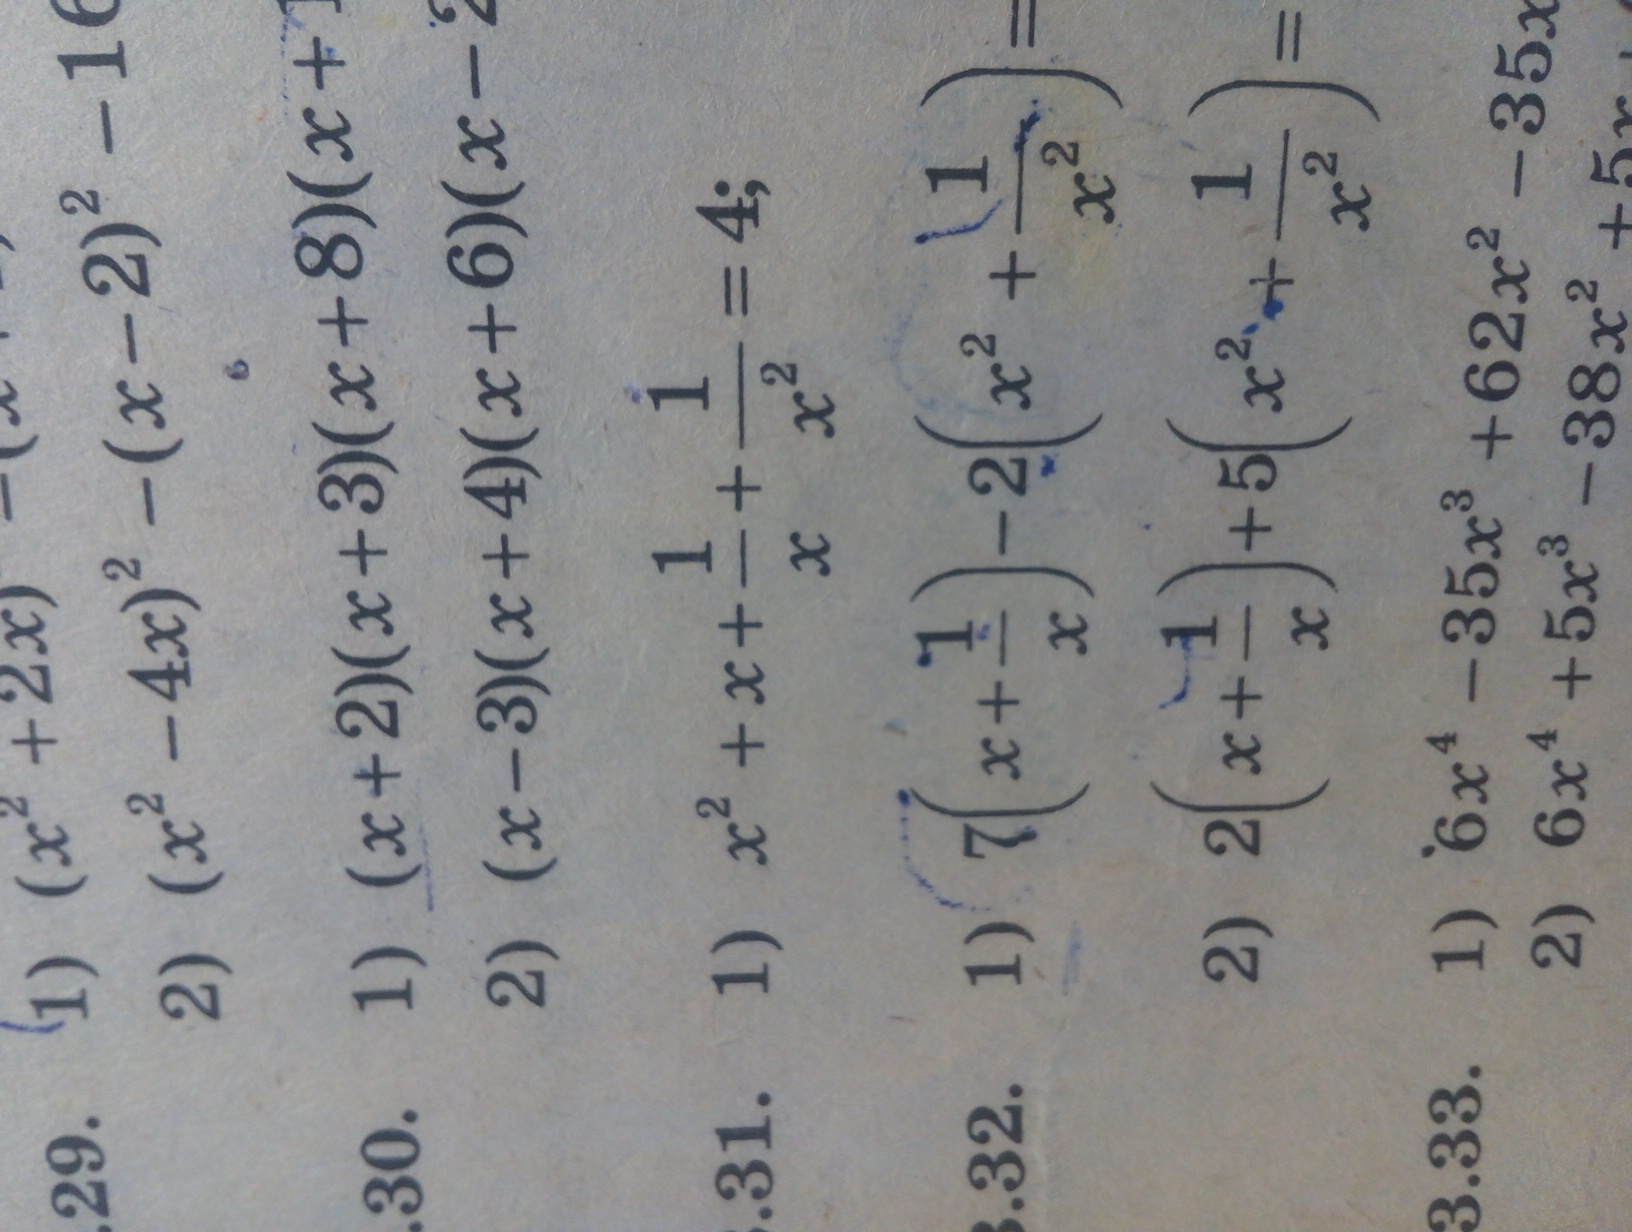 .29. 1) (x² + 2x)² − (x
2) (x² − 4x)² − (x − 2)² − 16
.30. 1) (x + 2)(x + 3)(x + 8)(x + 1
2) (x − 3)(x + 4)(x + 6)(x − 2
.31. 1) x² + x + 1/x + 1/x² = 4;
3.32. 1) 7(x + 1/x) − 2(x² + 1/x²) =
2) 2(x + 1/x) + 5(x² + 1/x²) =
3.33. 1) 6x⁴ − 35x³ + 62x² − 35x
2) 6x⁴ + 5x³ − 38x² + 5x